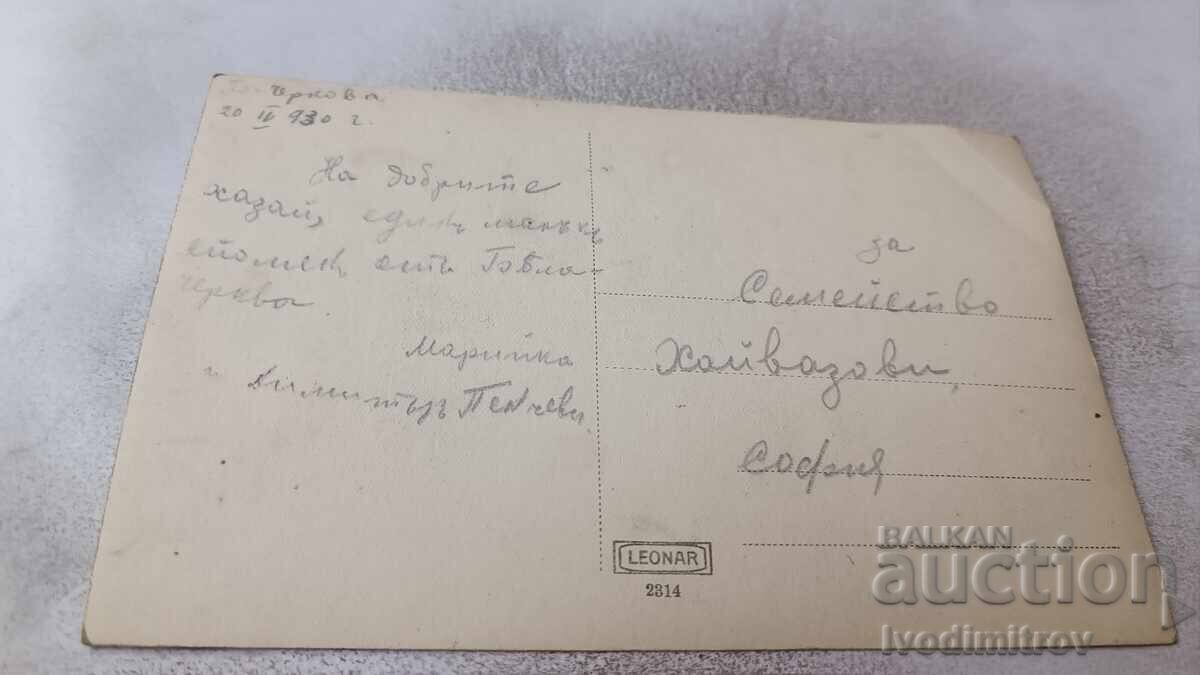 черкова
20 IV 930 г.
На добрите
хазаи, единъ малъкъ
спомен отъ Бѣла-
черква.
Марийка
и Димитъръ Пенчеви.
за
Семейство
Хайвазови,
София
LEONAR
2314
BALKAN
auction
Ivodimitrov